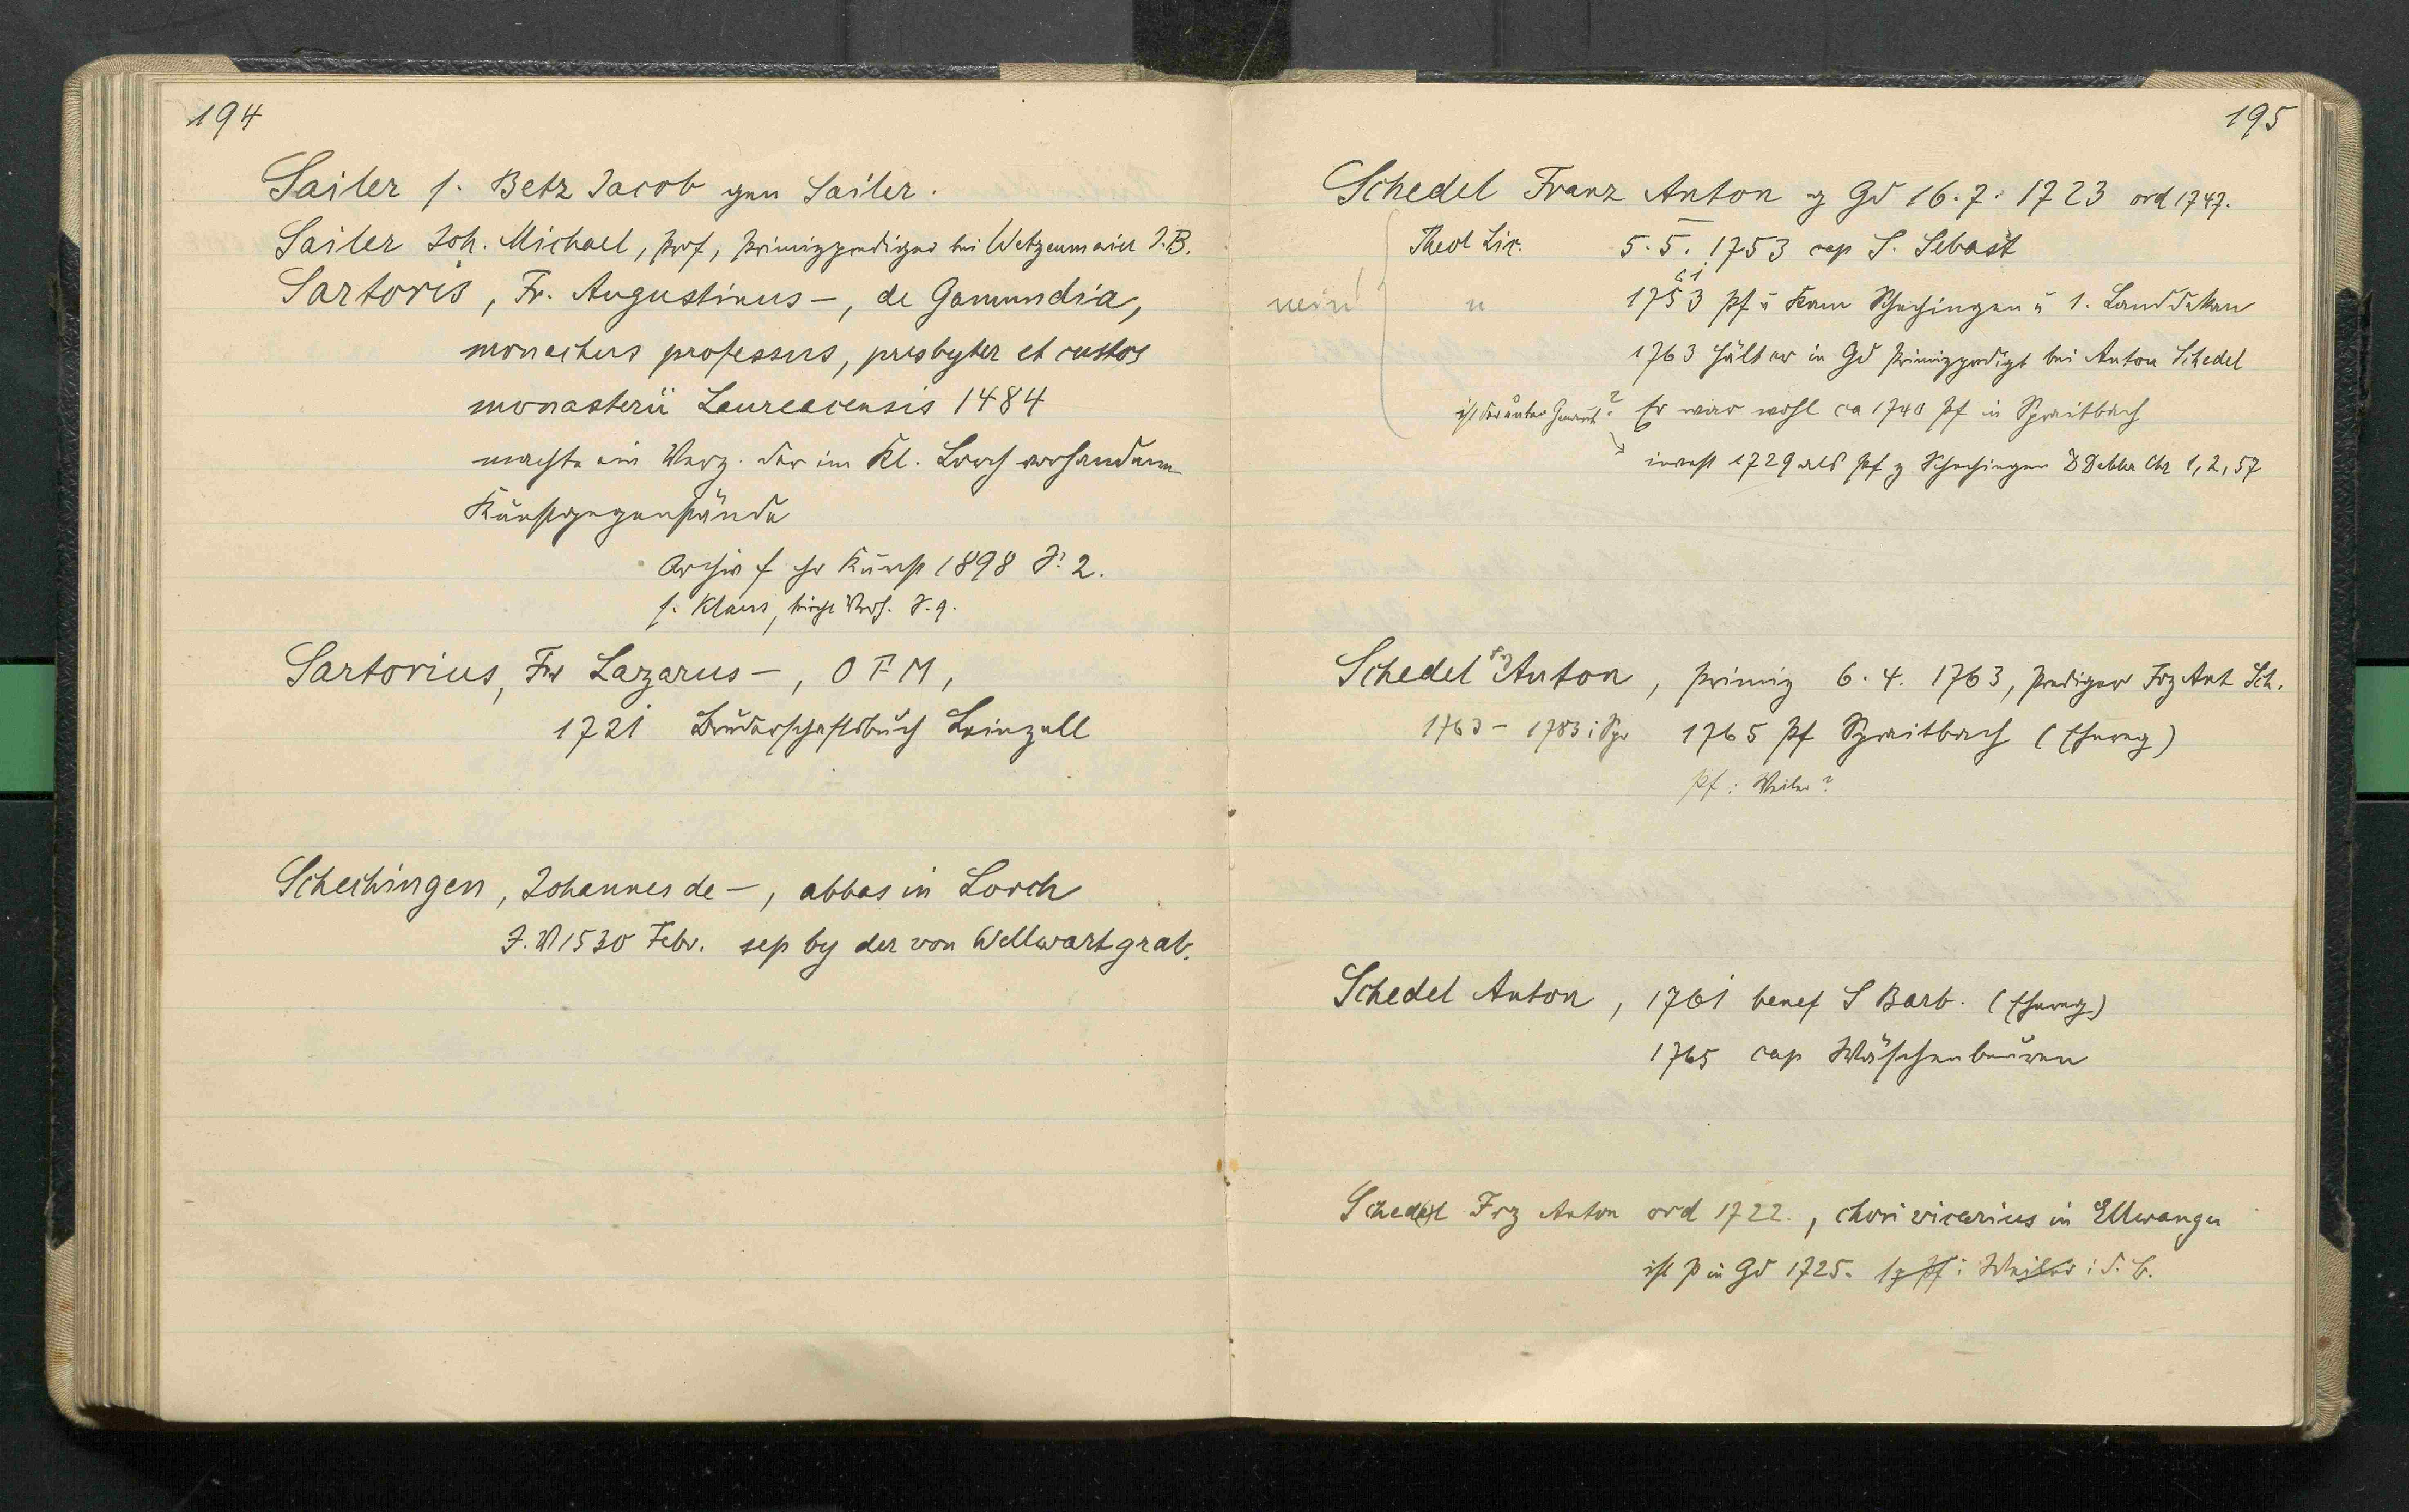 194
Sailer s. Betz Jacob gen Sailer.
Sailer Joh. Michael, Prof, Primizprediger bei Wetzenmaier J.B.
Sartoris, Fr. Augustinus –, de Gamundia,
monachus professus, presbyter et custos
monasterii Laureacensis 1484
machte ein Verz. der im Kl. Lorch vorhandenen
Kunstgegenstände
Archiv f chr Kunst 1898 S. 2.
s. Klaus, kirchl Verh. S. 9.
Sartorius, Fr Lazarus –, O F M,
1721 Bruderschaftsbuch Leinzell
Schechingen, Johannes de –, abbas in Lorch
1530 Febr. sep by der von Wellwart grab.
195
Schedel Franz Anton g Gd 16. 7. 1723 ord 1747.
Theol Lic. 5. 5. 1753 cap S. Sebast
61
nein u 1753 Pf u Kam Schechingen u 1. Landdekan
1763 hält er in Gd Primizpredigt bei Anton Schedel
ist der unter ? Er war wohl ca 1740 Pf in Spraitbach
invest 1729 als Pf z Schechingen Debler Chr 1, 2, 57
Schedel Frz Anton, Primiz 6. 4. 1763, Prediger Frz Ant Sch.
1763 – 1783 i Spr 1765 Pf Spraitbach
Pf i Weiler?
Schedel Anton, 1761 benef S Barb.
1765 cap Wäschenbeuren
Schedel Frz Anton ord 1722., chori vicarius in Ellwangen
ist P in Gd 1725. Pf i Weiler i. d. B.